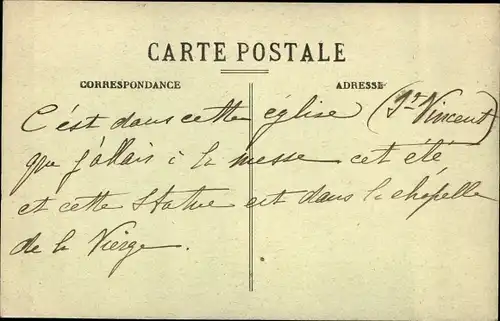 CARTE POSTALE
CORRESPONDANCE
ADRESSE
C'est dans cette église (St Vincent)
que j'allais à la messe cet été
et cette statue est dans la chapelle
de la Vierge.